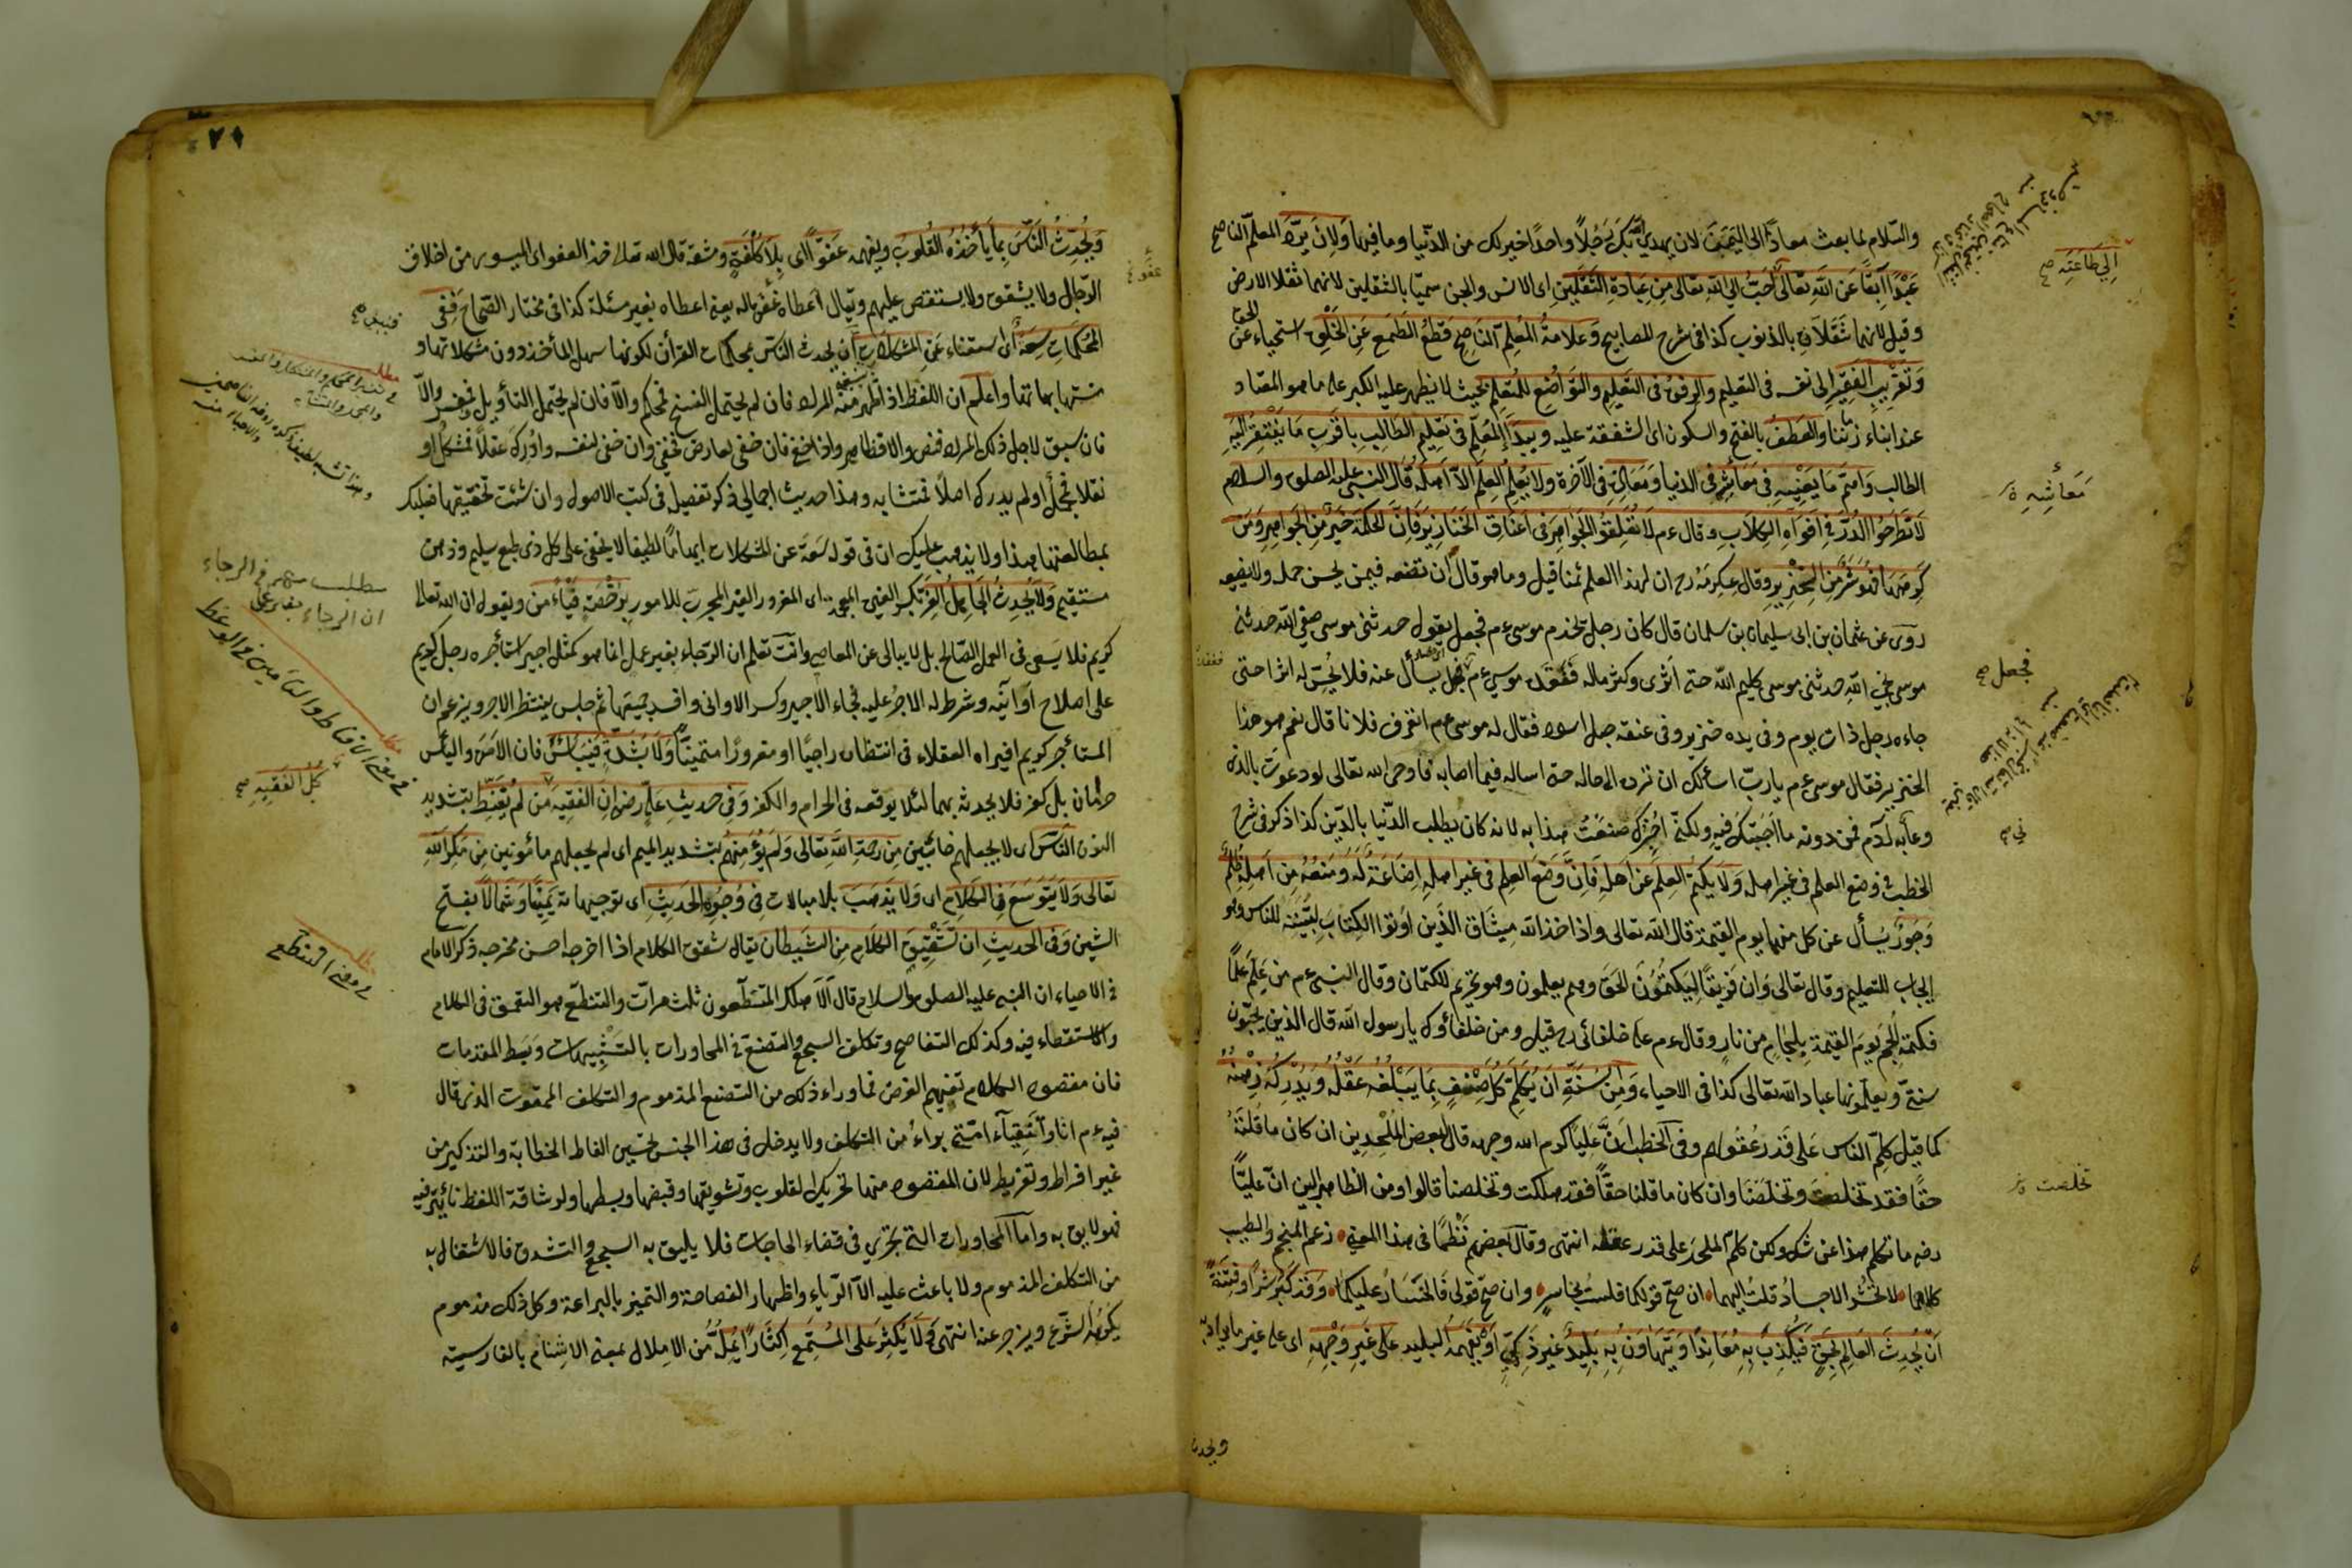 والسلام لما بعث معاذا الى اليمن لان يهدى الله بك رجلا واحدا خير لك من الدنيا وما فيها ولان يرد المعلم الناصح
عبدا آبقا عن الله تعالى احب الى الله تعالى من عبادة الثقلين اى الانس والجن سميا بالثقلين لانهما ثقلا الارض
وقيل لانهما ثقلان بالذنوب كذا فى شرح المصابيح وعلامة المعلم الناصح قطع الطمع عن الخلق استحياء عن الحق
وتقريب الفقير الى نفسه فى التعليم والرفق فى التعليم والتواضع للمتعلم بحيث لا يظهر عليه الكبر على ما هو المعتاد
عند ابناء زماننا والعطف بالفتح والسكون اى الشفقة عليه ويبدأ المعلم فى تعليم الطالب باقرب ما يفتقر اليه
الطالب واهم ما يعنيه فى معائشه فى الدنيا ومعاليه فى الآخرة ولا يعلم العلم الا اهله قال النبى عليه الصلوة والسلام
لا تطرحوا الدر فى افواه الكلاب وقال عم لا تعلقوا الجواهر فى اعناق الخنازير فان الحكمة خير من الجواهر ومن
كرهها فهو شر من الخنزير وقال عكرمة رح ان لهذا العلم ثمنا قيل وما هو قال ان تضعه فيمن يحسن حمله ولا يضيعه
روى عن عثمان بن ابى سليمان بن سلمان قال كان رجل يخدم موسى عم فجعل يقول حدثنى موسى صفى الله حدثنى
موسى نجى الله حدثنى موسى كليم الله حتى اثرى وكثر ماله ففقده موسى عم فجعل يسأل عنه فلا يحس له اثرا حتى
جاءه رجل ذات يوم وفى يده خنزير وفى عنقه حبل اسود فقال له موسى عم اتعرف فلانا قال نعم هو هذا
الخنزير فقال موسى عم يا رب اسئلك ان ترده الى حاله حتى اساله فيما اصابه فاوحى الله تعالى لو دعوت بالذى
دعا به آدم فمن دونه ما اجبتك فيه ولكنى اخبرك صنعت هذا به لانه كان يطلب الدنيا بالدين كذا ذكر فى شرح
الخطب فى وضع العلم فى غير اهله ولا يكتم العلم عن اهله فان وضع العلم فى غير اهله اضاعة له ومنعه من اهله ظلم
وجور يسأل عن كل منهما يوم القيمة قال الله تعالى واذ اخذ الله ميثاق الذين اوتوا الكتاب لتبيننه للناس وهو
ايجاب للتعليم وقال تعالى وان فريقا ليكتمون الحق وهم يعلمون وهو تحريم للكتمان وقال النبى عم من علم علما
فكتمه الجم يوم القيمة بلجام من نار وقال عم على خلفائى رح قيل ومن خلفاؤك يا رسول الله قال الذين يحبون
سنتى ويعلمونها عباد الله تعالى كذا فى الاحياء ومن السنة ان يكلم كل صنف بما يبلغه عقله ويدركه ذهنه
كما قيل كلم الناس على قدر عقولهم وفى الخطب ان عليا كرم الله وجهه قال لبعض الملحدين ان كان ما قلته
حقا فقد تخلصت وتخلصنا وان كان ما قلنا حقا فقد هلكت وتخلصنا قالوا ومن الظاهر البين ان عليا
رضه ما تكلم هذا عن شك ولكن كلم الملحد على قدر عقله انتهى وقال بعضهم نظما فى هذا المعنى زعم المنجم والطبيب
كلاهما لا تحشر الاجساد قلت اليهما ان صح قولكما فلست بخاسر وان صح قولى فالخسار عليكما وقد كبر شرا وفتنة
ان يحدث العالم بحق فيكذب به معاندا ويتهاون به بليد غير ذكى او يفهمه البليد على غير وجهه اى على غير
ويحدث
الى طاعته صح
معائشه
فجعل صح
تخلصت
٧٩
ويحدث الناس بما يأخذه القلوب ويفهمه عفوا اى بلا كلفة ومشقة قال الله تعالى خذ العفو اى الميسور من اخلاق
الرجال ولا يشقق ولا يستقص عليهم ويقال اعطاه عفو ماله يعنى اعطاه بغير مسئلة كذا فى مختار الصحاح ففى
المحكمات سعة اى استغناء عن المشكلات اى يحدث الناس بمحكمات القرأن لكونها سهل المأخذ دون مشكلاتها و
متشابهاتها واعلم ان اللفظ اذا ظهر منه المراد فان لم يحتمل النسخ فمحكم والا فان لم يحتمل التأويل فمفسر والا
فان سبق لاجل ذلك المراد فنص والا فظاهر واذا خفى فان خفى لعارض فخفى وان خفى لنفسه وادرك عقلا فمشكل او
نقلا فمجمل او لم يدرك اصلا فمتشابه وهذا حديث اجمالى ذكر تفصيله فى كتب الاصول وان شئت تحقيقها فعليك
بمطالعتها هذا ولا يذهب عليك ان فى قوله سعة عن المشكلات ايهاما لطيفا لا يخفى على كل ذى طبع سليم وذهن
مستقيم ولا يحدث الجاهل الغر بكسر الغين المعجمة اى المغرور الغير المجرب للامور برخصة فيأمن ويقول ان الله تعالى
كريم فلا يسعى فى العمل الصالح بل لا يبالى عن المعاصى وانت تعلم ان الرجاء بغير عمل انما هو كمثل اجير استأجره رجل كريم
على اصلاح اوانيه وشرط له الاجر عليه فجاء الاجير وكسر الاوانى وافسد جميعها ثم جلس ينتظر الاجر ويزعم ان
المستأجر كريم افيراه العقلاء فى انتظاره راجيا او مغرورا متمنيا ولا بشدة فييأس فان الامن واليأس
حرمان بل كفر فلا يحدثه بهما لئلا يوقعه فى الحرام والكفر وفى حديث على رض ان الفقيه من لم يقنط بتشديد
النون الناس اى لا يجعلهم خائبين من رحمة الله تعالى ولم يؤمنهم بتشديد الميم اى لم يجعلهم مأمونين من مكر الله
تعالى ولا يتوسع فى الكلام اى ولا يذهب بلا مبالات فى وجوه الحديث اى توجيهاته يمينا وشمالا بفتح
الشين وفى الحديث ان تشقيق الكلام من الشيطان يقال شقق الكلام اذا اخرجه احسن مخرجه ذكر الامام
فى الاحياء ان النبى عليه الصلوة والسلام قال الا هلك المتنطعون ثلث مرات والتنطع هو التعمق فى الكلام
والاستقصاء فيه وكذلك التفاصح وتكلف السجع والتصنع فى المحاورات بالتشبيهات وبسط المقدمات
فان مقصود الكلام تفهيم الغرض فما وراء ذلك من التصنع المذموم والتكلف الممقوت الذى قال
فيه عم انا واتقياء امتى براء من التكلف ولا يدخل فى هذا الجنس تحسين الفاظ الخطابة والتذكير من
غير افراط وتفريط لان المقصود منها تحريك القلوب وتشويقها وقبضها وبسطها ولرشاقة اللفظ تأثير فيه
فهو لايق به واما المحاورات التى تجرى فى قضاء الحاجات فلا يليق به السجع والتشدق فالاشتغال به
من التكلف المذموم ولا باعث عليه الا الرياء واظهار الفصاحة والتميز بالبراعة وكل ذلك مذموم
يكرهه الشرع ويزجر عنه انتهى ولا يكثر على المستمع اكثارا يمل من الاملال بمعنى الابرام بالفارسية
مطلب مهم فى الرجاء
ان الرجاء بغير عمل
مطلب فى معنى الاقناط والتأمين فى الوعظ
كل الفقيه صح
مطلب فى معنى التنطع